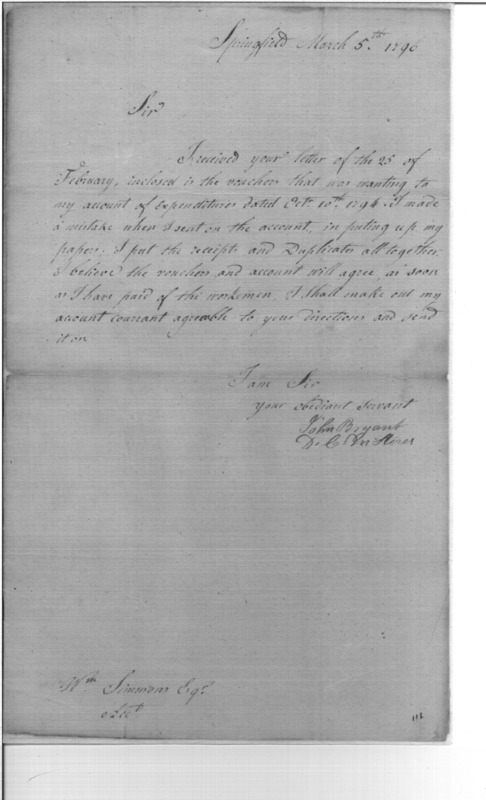 Springfield March 5.th 1796
Sir
I received your letter of the 25 of
February, inclosed is the vouchers that was wanting to
my account of Expenditures dated Octr 10th 1794 I made
a mistake when I sent on the account, in puting up my
papers, I put the receipts and Duplicates all together.
I believe the vouchers and account will agree, as soon
as I have paid of the workemen, I shall make out my
account currant agreable to your directions and send
it on
I am Sir
your obediant servant
John Bryant
D. C. M Stores
Wm Simmons Esqr
112